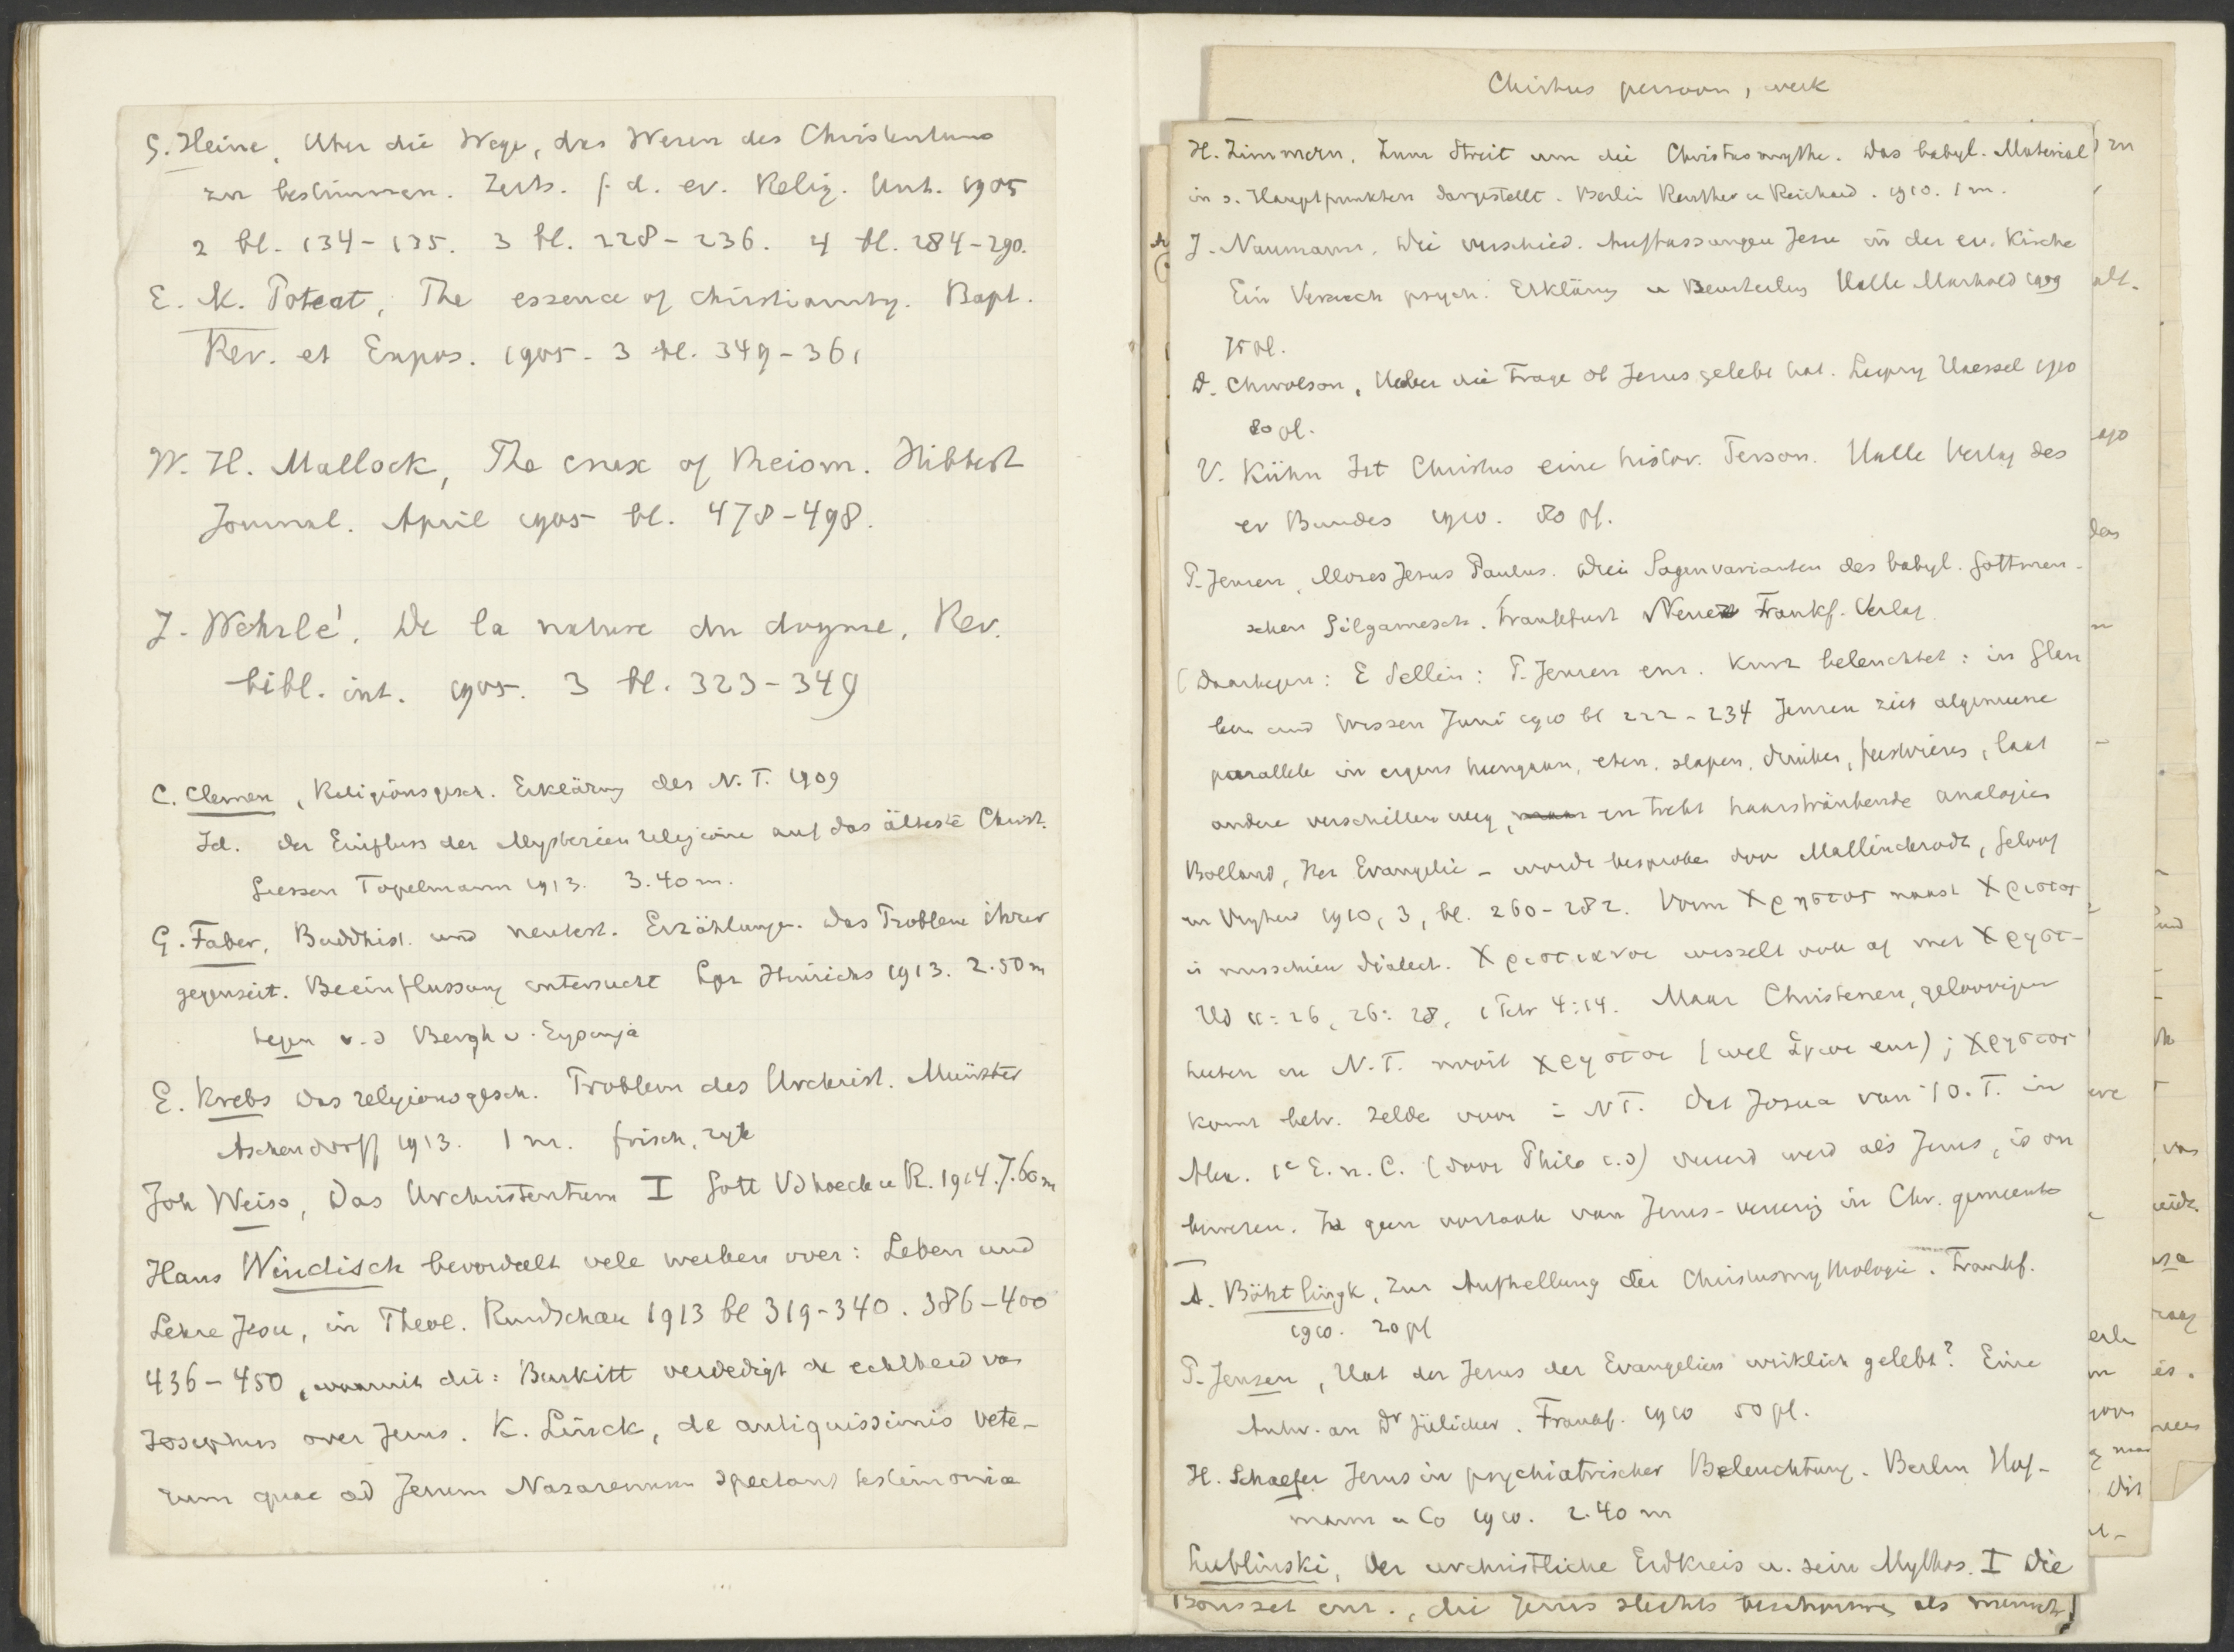 G. Heine, Uber die Wege, das Wesen des Christentums
zu bestimmen. Zeits. f. d. ev. Relig. Unt. 1905
2 bl. 134-135. 3 bl. 228-236. 4 bl. 284-290.
E. M. Poteat, The essence of Christianity. Bapt.
Rev. et Expos. 1905. 3 bl. 349-361
W. H. Mallock, The crux of Theism. Hibbert
Journal. April 1905 bl. 478-498.
J. Wehrlé, De la nature du dogme, Rev.
bibl. int. 1905. 3 bl. 323-349
C. Clemen, Religionsgesch. Erklärung des N.T. 1909
Id. Der Einfluss der Mysterien religione auf das älteste Christ.
Giessen Topelmann 1913. 3.40 m.
G. Faber, Buddhist. und neutest. Erzählungen. Das Problem ihrer
gegenseit. Beeinflussung untersucht Lpz Hinrichs 1913. 2.50 m
tegen v.d Bergh v. Eysinga
E. Krebs Das religionsgesch. Problem des Urchrist. Münster
Aschendorff 1913. 1 m. frisch, zyk
Joh Weiss, Das Urchristentum I Gott Vdhoeck u R. 1914. 7.60 m
Hans Windisch beoordeelt vele werken over: Leben und
Lehre Jesu, in Theol. Rundschau 1913 bl 319-340. 386-400
436-450, waaruit dit: Burkitt verdedigt de echtheid van
Josephus over Jezus. K. Linck, de antiquissimis vete-
rum quae ad Jesum Nazarenum spectant testimonia
Christus persoon, werk
H. Zimmern. Zum Streit um die Christusmythe. Das babyl. Material
in s. Hauptpunkten dargestellt. Berlin Reuther u Reichard. 1910. 1 m.
J. Naumann. Die verschied. Auffassungen Jesu in der ev. Kirche
Ein Versuch psych. Erklärung u Beurteilung Halle Marhold 1909
75 pf.
D. Chwolson, Ueber die Frage ob Jesus gelebt hat. Leipzig Haessel 1910
80 pf.
V. Kühn Ist Christus eine histor. Person. Halle Verlag des
ev Bundes 1910. 80 pf.
P. Jensen, Moses Jesus Paulus. Drei Sagenvarianten des babyl. Gottmen-
schen Gilgamesch. Frankfurt Neuer Frankf. Verlag.
(Daartegen: E Sellin: P. Jensen enz. kurz beleuchtet: in Glau
ben und Wissen Juni 1910 bl 222-234 Jensen ziet algemeene
parallele in ergens heengaan, eten, slapen, drinken, feestvieren, laat
andere verschillen weg, en trekt haarsträubende analogies
Bolland, Het Evangelie - wordt besproken door Mallinckrodt, Geloof
en Vryheid 1910, 3, bl. 260-282. Vorm Χρηστος naast Χριστος
is misschien dialect. Χριστιανοι wisselt vaak af met Χρηστ-
Hd 11:26, 26:28, 1 Petr 4:14. Maar Christenen, geloovigen
heeten in N.T. nooit χρηστοι (wel ἁγιοι enz); χρηστος
komt betr. zelde voor in NT. Dat Josua van 't O.T. in
Alex. 1e E. n. C. (door Philo c.s) vereerd werd als Jezus, is on
bewezen. Is geen oorzaak van Jezus-vereering in Chr. gemeente
A. Böhtlingk, Zur Aufhellung der Christusmythologie. Frankf.
1910. 20 pf
P. Jensen, Hat der Jesus der Evangelien wirklich gelebt? Eine
Antw. an Dr Jülicher. Frankf. 1910 50 pf.
H. Schaefer Jesus in psychiatrischer Beleuchtung. Berlin Hof-
mann u Co 1910. 2.40 m
Lublinski, Der urchristliche Erdkreis u. sein Mythos. I Die
Bousset enz., die Jezus slechts beschouwen als mensch